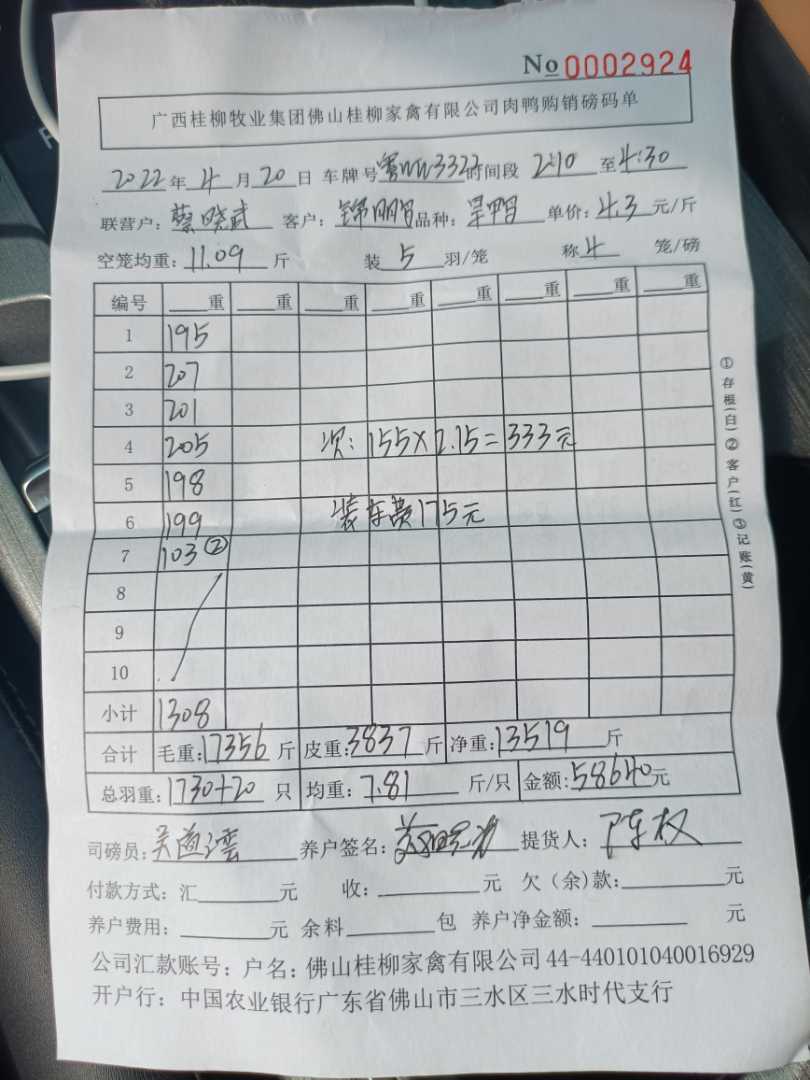 No 0002924
广西桂柳牧业集团佛山桂柳家禽有限公司肉鸭购销磅码单
2022年4月20日 车牌号 3322时间段 2:10 至4:30
联营户: 蔡晓武 客户: 锦明 品种: 旱鸭 单价: 4.3 元/斤
空笼均重: 11.09 斤 装 5 羽/笼 称 4 笼/磅
编号 重 重 重 重 重 重 重 重
1 195
2 207
3 201
4 205 次: 155×2.15=333元
5 198
6 199 装车费175元
7 103②
8
9
10
小计 1308
合计 毛重: 17356 斤 皮重: 3837 斤 净重: 13519 斤
总羽重: 1730+20 只 均重: 7.81 斤/只 金额: 58640元
司磅员: 养户签名: 提货人: 陈权
付款方式: 汇 元 收: 元 欠（余）款: 元
养户费用: 元 余料 包 养户净金额: 元
公司汇款账号: 户名: 佛山桂柳家禽有限公司 44-440101040016929
开户行: 中国农业银行广东省佛山市三水区三水时代支行
①存根(白)②客户(红)③记账(黄)